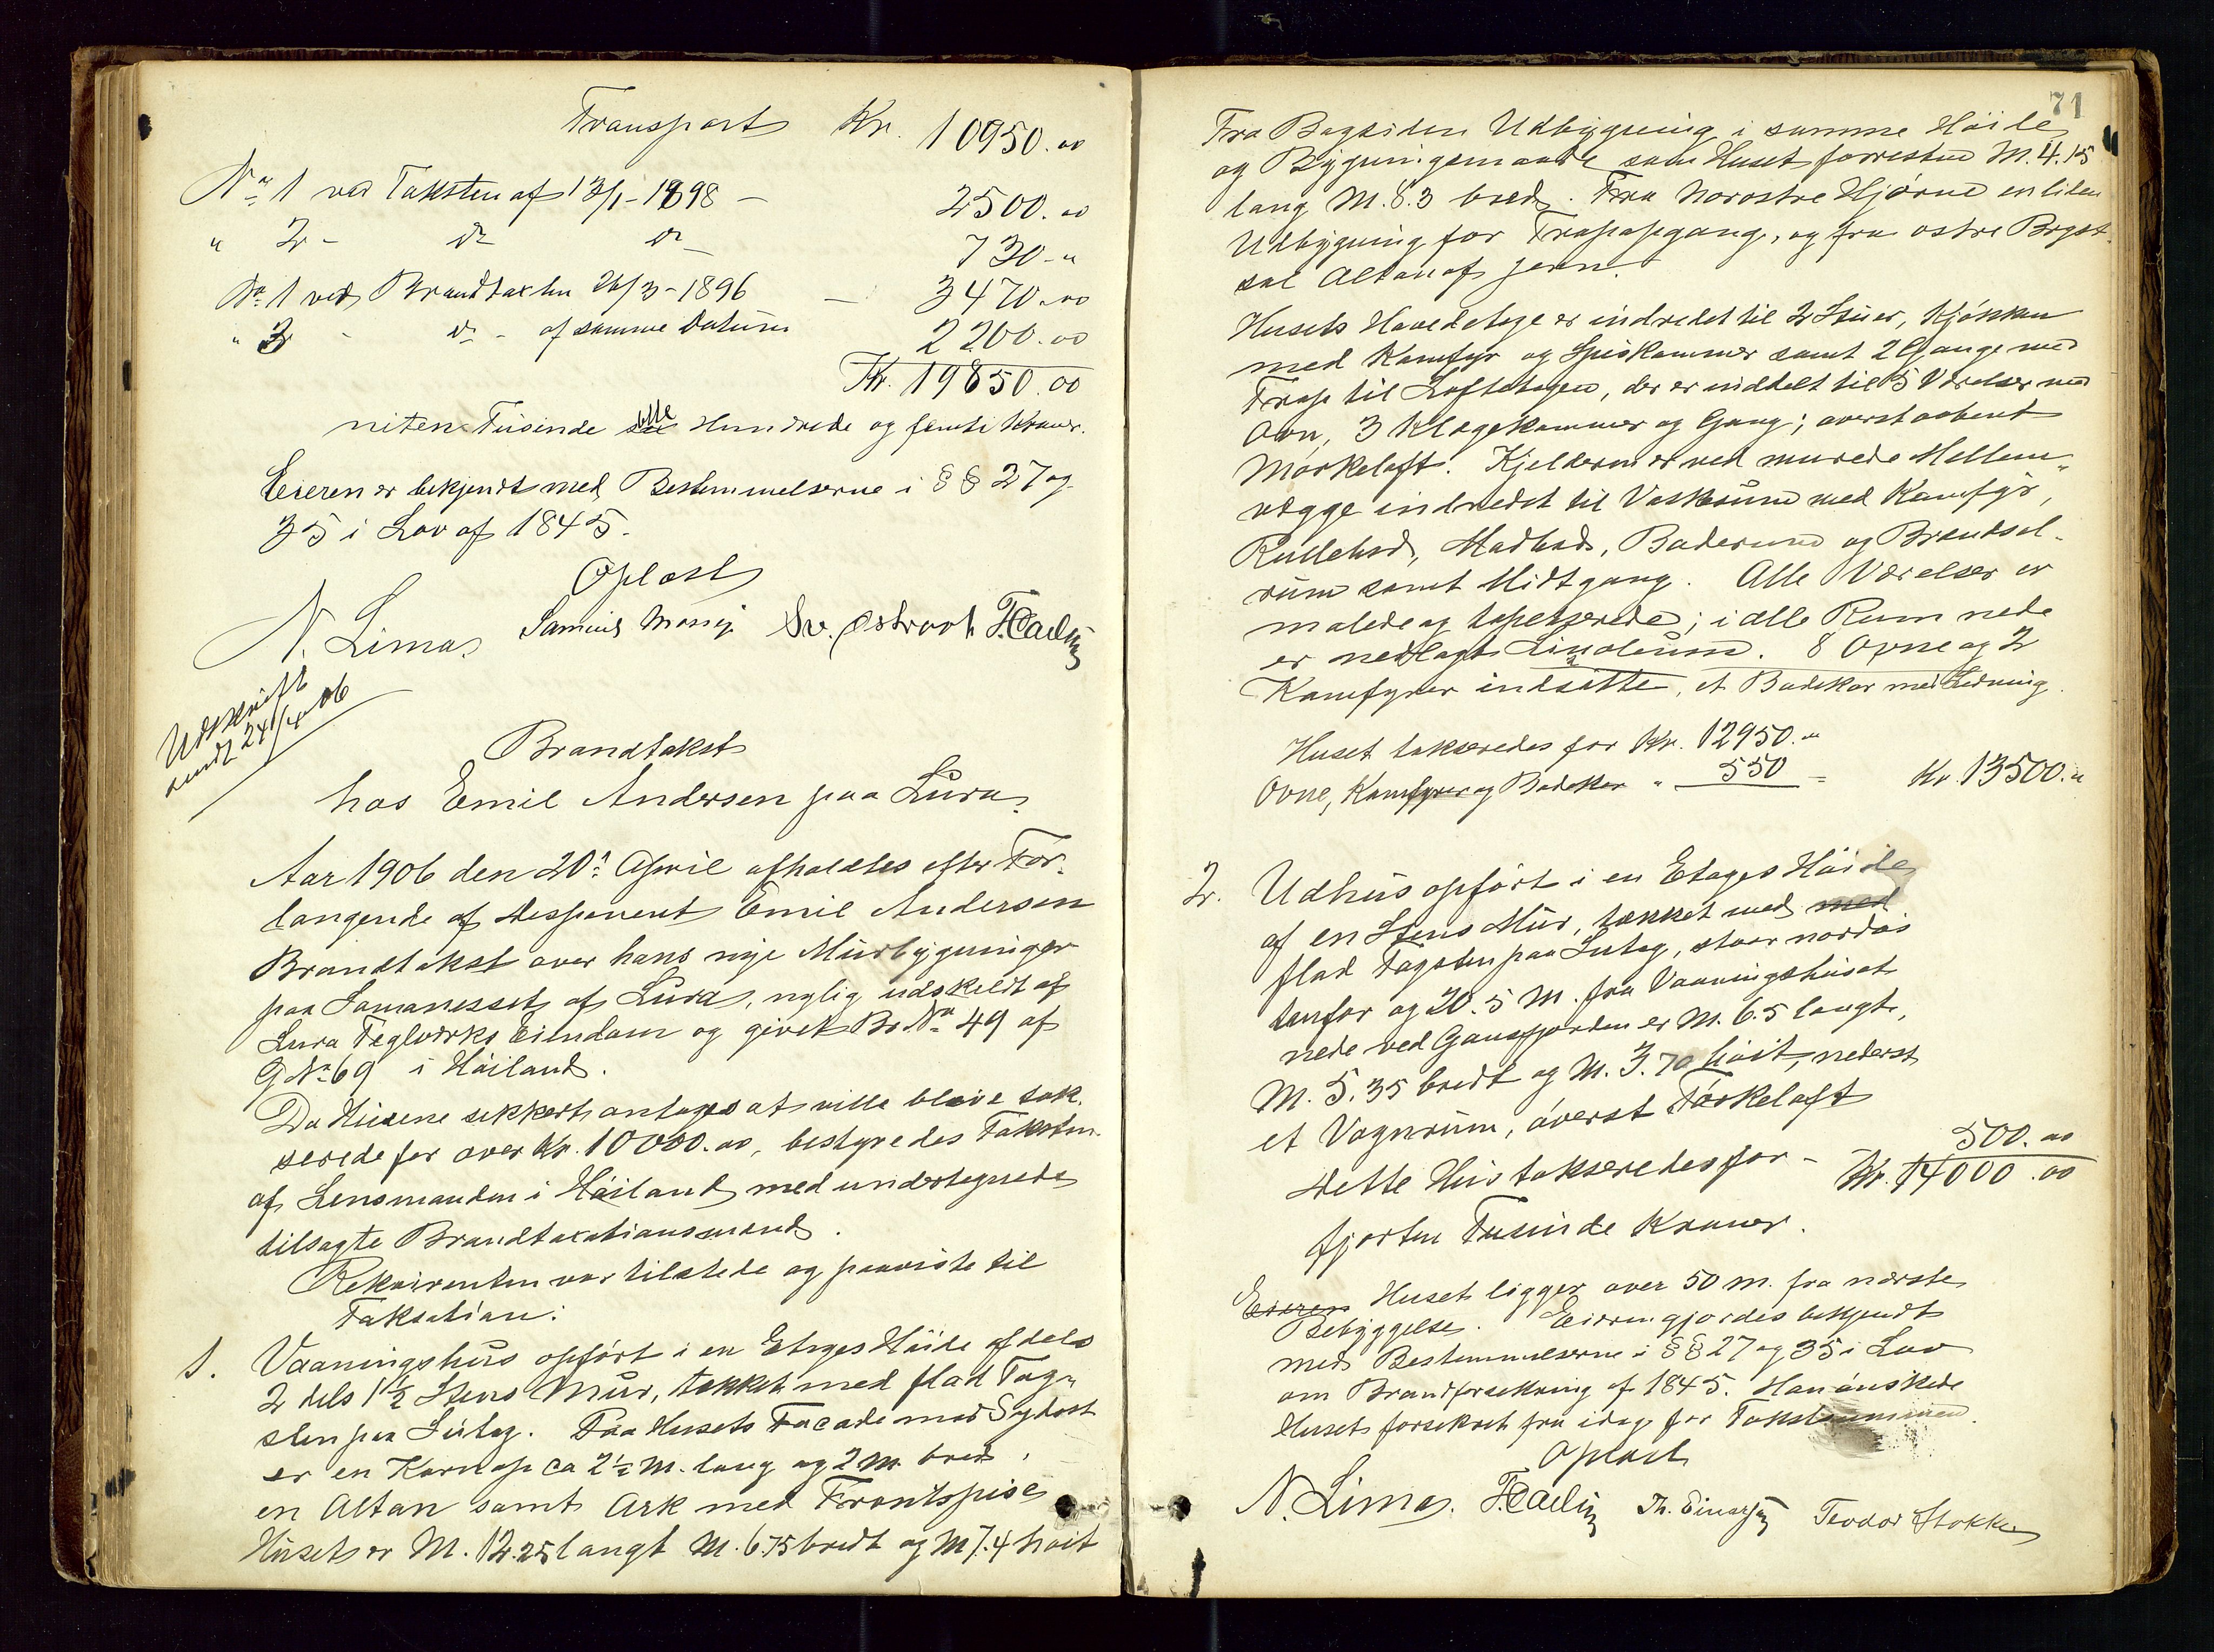 Transport Kr. 10950.00
No 1 ved Taksten af 13/1-1898 - 2500.00
" 2 - do do 730-"
No 1 ved Brandtaxten 26/3-1896 - 3470.00
" 3 - do - af samme Datum 2200.00
Kr. 19850.00
niten Tusinde otte Hundrede og femti Kroner.
Eieren er bekjendt med Bestemmelserne i §§ 27 og
35 i Lov af 1845.
Oplæst
N. Lima. Sv. Østraat
Udskrift
sendt 24/4 06
Brandtakst
hos Emil Andersen paa Lura.
Aar 1906 den 20de April afholdtes efter For-
langende af Disponent Emil Andersen
Brandtakst over hans nye Murbygninger
paa Lamanesset af Lura, nylig udskildt af
Lura Teglværks Eiendom og givet Br. No 49 af
G No 69 i Høiland.
Da Husene sikkert antages at ville blive tak-
serede for over Kr. 10000.00, bestyredes Taksten
af Lensmanden i Høiland med undertegnede
tilsagte Brandtaxationsmænd.
Rekvirenten var tilstede og paaviste til
Taksation:
1. Vaaningshus opført i en Etages Høide af dels
2 dels 1 1/2 Stens Mur, tækket med flad Tag-
sten paa Sutag. Paa Husets Facade mod Sydost
er en Karnap ca 2 1/2 M. lang og 2 M. bred,
en Altan samt Ark med Frontspise
Huset er M. 12.25 langt M. 6.75 bredt og M 7.4 høit
71
Fra Bagsiden Udbygning i samme Høide
og Bygningsmaade som Huset forresten M. 4.15
lang M. 8.3 bred. Fra Nordøstre Hjørne en liden
Udbygning for Trapopgang, og fra østre
Altan af Jern.
Husets Hovedetage er indredet til 2 Stuer, Kjøkken
med Komfyr og Spiskammer samt 2 Gange med
Trap til Loftetagen, der er inddelt til 5 Værelser med
Ovn, 3 Klægekammer og Gang; øverst aabent
Mørkeloft. Kjelderen er ved murede Mellem-
vægge indredet til Vaskerum med Komfyr,
Rullebod, Madbod, Baderum og Brændsel-
rum samt Midtgang. Alle Værelser er
malede og tapetserede; i alle Rum nede
er nedlagt Linoleum. 8 Ovne og 2
Komfyrer indsatte, et Badekar med Ledning.
Huset takseredes for Kr. 12950."
Ovne, Komfyrer og Badekar " 550 = Kr. 13500."
2. Udhus opført i en Etages Høide
af en Stens Mur, tækket med med
flad Tagsten paa Sutag, staar nordøs
tenfor og 20.5 M. fra Vaaningshuset
nede ved Gansfjorden er M. 6.5 langt,
M. 5.35 bredt og M. 3.70 høit, nederst
et Vognrum, øverst Tørkeloft
Dette Hus takseredes for - 500.00
Kr. 14000.00
fjorten Tusinde Kroner.
Eieren Huset ligger over 50 m. fra nærste
Bebyggelse. Eieren gjordes bekjendt
med Bestemmelserne i §§ 27 og 35 i Lov
om Brandforsikring af 1845. Han ønskede
Huset forsikret fra idag for Takstsummen.
Oplæst
N. Lima. Th. Einarsen Teodor Stokke